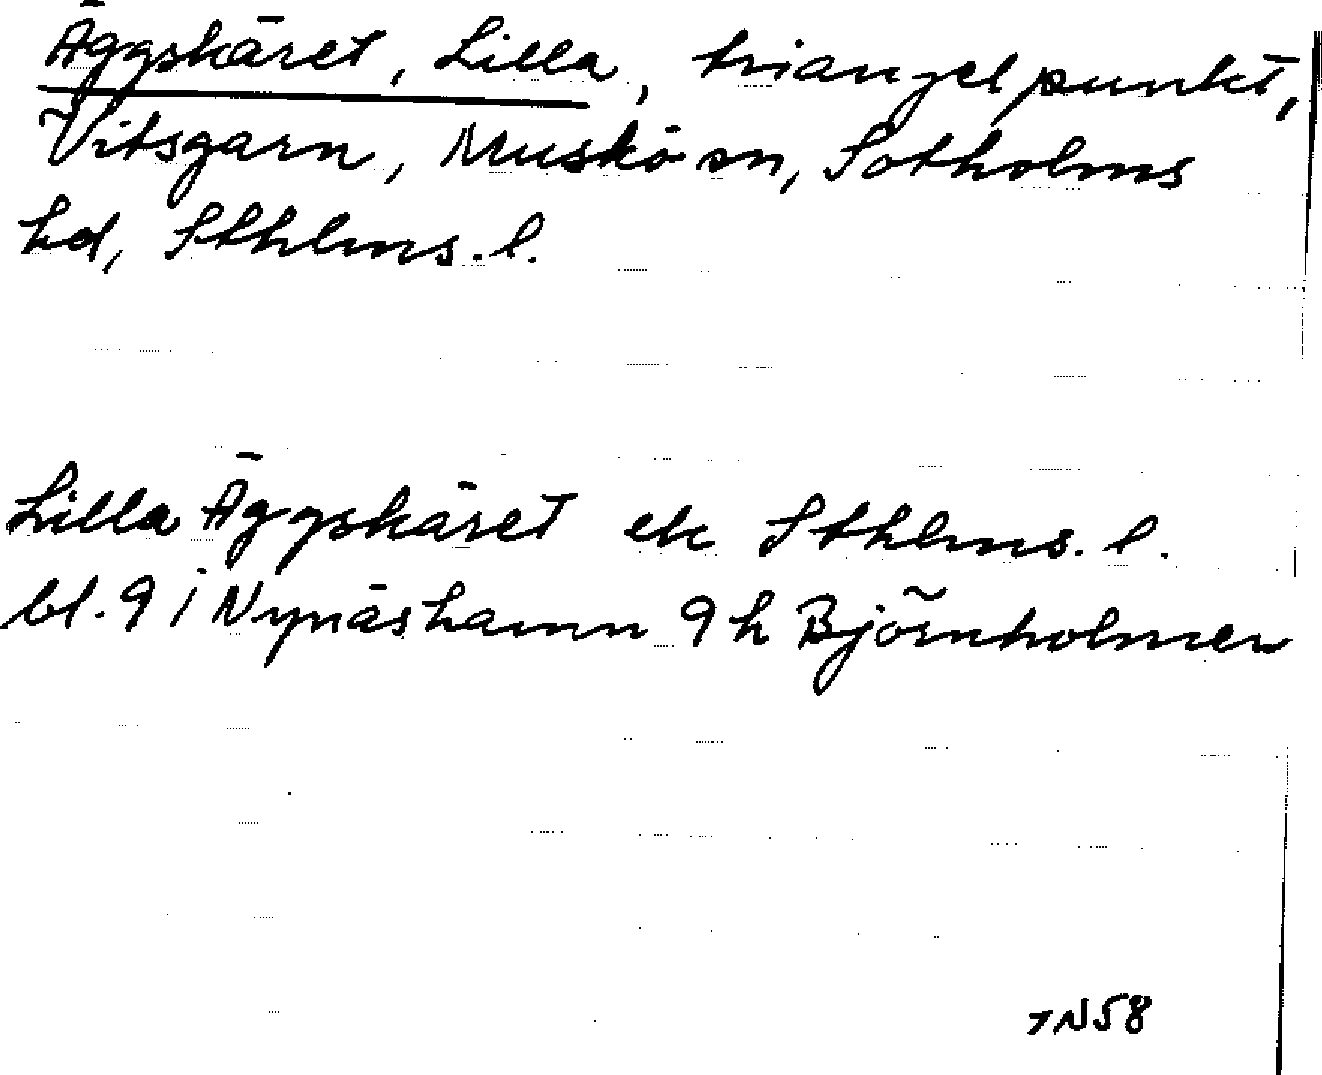 Äggskäret, Lilla, triangelpunkt,
Vitsgarn, Muskö sn, Sotholms
hd, Sthlms. l.
Lilla Äggskäret ek Sthlms. l.
bl. 9 i Nynäshamn 9 h Björnholmen